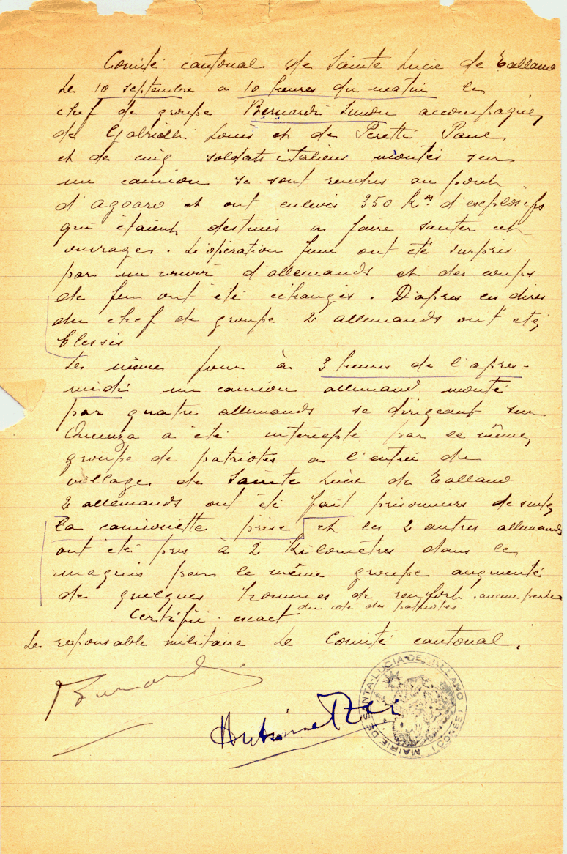 Comité cantonal de Sainte Lucie de Tallano
Le 10 septembre a 10 heures du matin le
chef de groupe Bernardi accompagné,
de Gabrielli Louis et de Peretti Paul
et de cinq soldats italiens montés sur
un camion se sont rendus au pont
d'agoaro et ont enlevé 350 kgs d'explosifs
qui étaient destinés a faire sauter cet
ouvrages. L'opération finie ont été surpris
par un d'allemands et des coups
de feu ont été échangés. D'après les dires
du chef de groupe 2 allemands ont été
blessés
Le même jour à 3 heures de l'après
midi un camion allemand monté
par quatres allemands se dirigeant sur
Quenza a été intercepté par le même
groupe de patriotes a l'entrée du
village de Sainte Lucie de Tallano
2 allemands ont été fait prisonniers de suite
la camionette prise et les 2 autres allemands
ont été pris à 2 kilomètres dans le
maquis par le même groupe augmenté
de quelques hommes de renfort. aucune perte
du coté des patriotes
Certifié exact
Le responsable militaire Le Comité cantonal.
Bernardi
Antoine
MAIRIE DE SANTA-LUCIA-DI-TALLANO (CORSE)